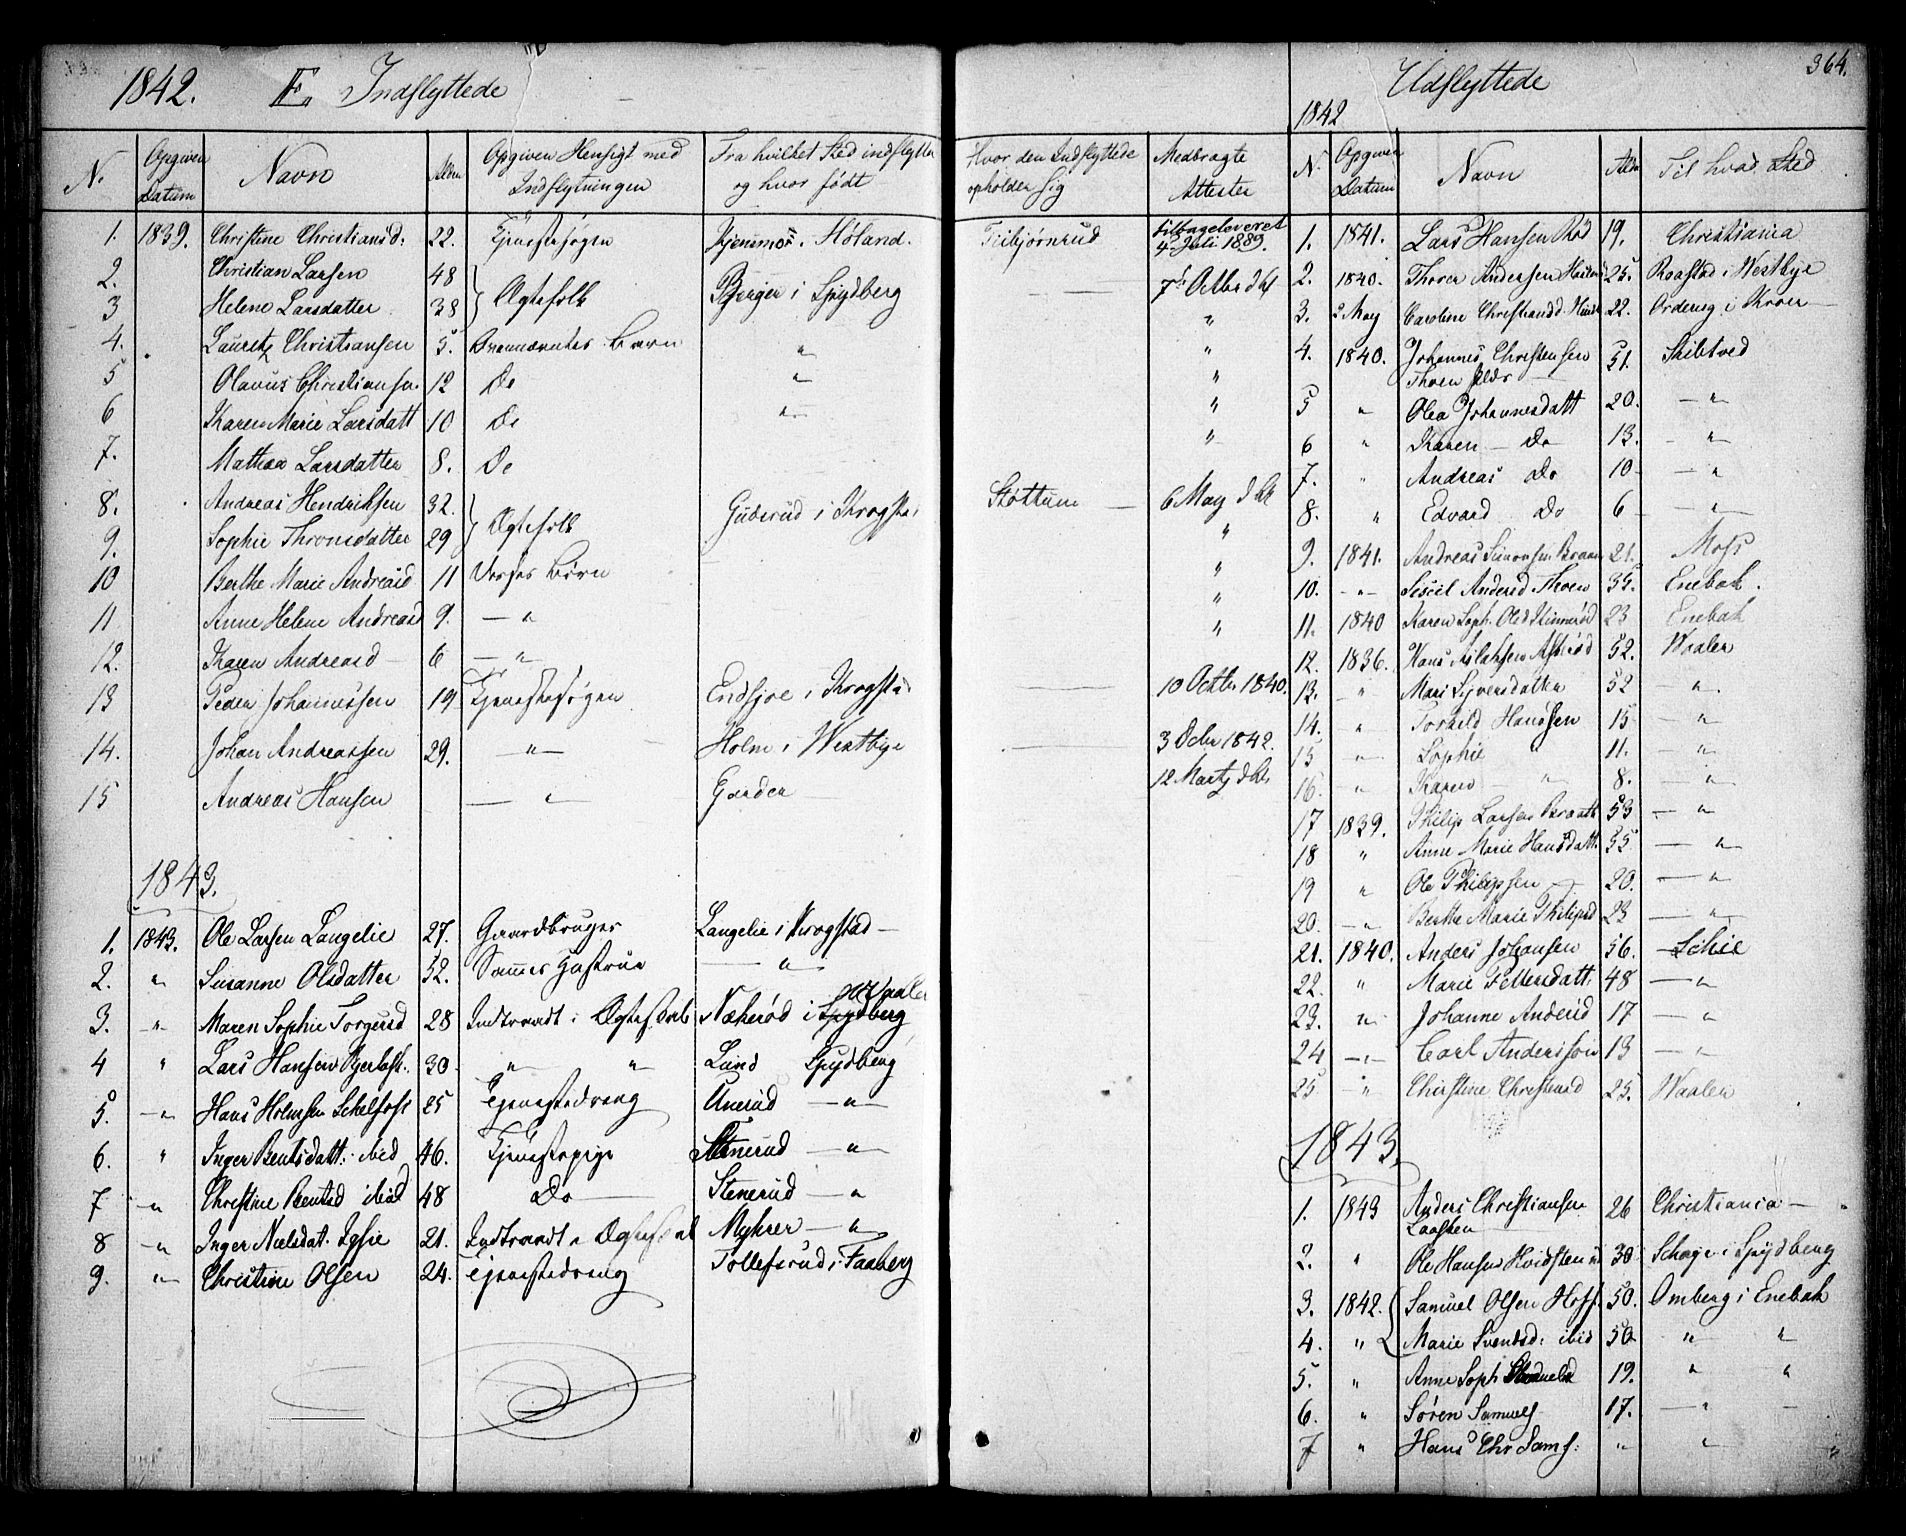 1842. E. Indflyttede
N. Opgiven Datum Navn Alder Opgiven Hensigt med Indflytningen Fra hvilket Sted indflyttet og hvor født Hvor den Indflyttede opholder sig Medbragte Attester
1. 1839. Christine Christiansd: 22. Tjenestesøgen i Høland. tilbageleveret 4 Juli 1889.
2. Christian Larsen 48 Ægtefolk Berger i Spydberg 7de Octbr d A
3 Helene Larsdatter 38 "
4. Lauretz Christiansen 5. Ovennævntes Børn " "
5 Olavus Christianse. 12 Do " "
6 Karen Marie Larsdatt 10 Do " "
7. Mathea Larsdatter 8. Do "
8. Andreas Hendriksen 32. Ægtefolk Guderud i Krogsta Støttum 6 May d A
9. Sophie Thronsdatter 29 "
10 Berthe Marie Andreasd 11 Deres Børn "
11 Anne Helene Andreasd 9. — " "
12. Karen Andreasd 6 — " "
13 Peder Johannessen 19 Tjenestesøgen Endsjøe i Krogstad 10 Octbr 1840.
14. Johan Andreassen 29. — " — Holm i Westbye 3 Octbr 1842.
15 Andreas Hansen — " — Garder 12 Marty d A.
1843.
1. 1843. Ole Larsen Langelie 27. Gaardbruger Langelie i Krogstad —
2. " Susanne Olsdatter 52. Sammes Hustrue — " —
3. " Maren Sophie Torgersd 28 Indtraadt i Ægtestab Næherød i Spydberg Waaler
4 " Lars Hansen 30 " " Lund Spydberg
5. — " Hans Holmsen Schelfoss 25 Tjenestedreng Unerud — " —
6. " Inger Bentsdatt: ibid 46. Tjenestepige Stenerud — " —
7 — " Christine Bentsd ibid 48 Do — Stenerud — "
8 — " Inger Nielsdat. 21. Indtraadt i Ægtestab Myhrer — " —
9. " Christine Olsen 24. Tjenestedreng Tollefsrud i Faaberg
364.
Udflyttede
1842
N. Opgiven Datum Navn Aldr Til hvad Sted
1. 1841. Lars Hansen Rød 19. Christiania
2. 1840. Thorer Andersen 25. Raastad i Westbye
3. 2 May Caroline Christiansd. 22. Orderug i Kroer
4. 1840. Johannes Christensen 51. Skibtved
Thoen
5 " Olea Johannesdatt 20. — " —
6 " Karen — Do 13. — "
7. " Andreas Do 10 — "
8. " Edvard Do 6 — " —
9. 1841. Andreas Simonsen Braaten 21. Moss
10. — " — Sissil Andersd Thoen 35. Enebak.
11. 1840 Karen Soph. Olsd 23 Enebak
12. 1836. Hans Aslaksen 52. Waaler
13. — " Mari Syversdatter 52 — " —
14. " Torkild Hanssen 15 — " —
15 — " — Sophie 11. — " —
16. " Karen — " 8. "
17 1839. Philip Larsen Braath 53 — " —
18 " Anne Marie Hansdatt. 55 — " —
19 " Ole Philipsen 20. — " —
20. — " — Berthe Marie Philipsd 23 — " —
21. 1840. Anders Johansen 56. Schie
22. " Marie Pettersdatt 48 — " —
23. " Johanne Andersd 17 — "
24 — " — Carl Anderssøn 13 — " —
25 — " Christine Christensd 25. Waaler
1843.
1. 1843 Anders Christiansen 26 Christiania —
Laasken
2. " Ole Hansen Hvidsten 30 i Spydberg
3. 1842. Samuel Olsen Hoff 50. Omberg i Enebak
4. " Marie Svendsd: ibid 50 " "
5. " Anne Soph 19. " "
6. " Søren Samuels 17. — " —
7 " Hans Chr Sams: " " "